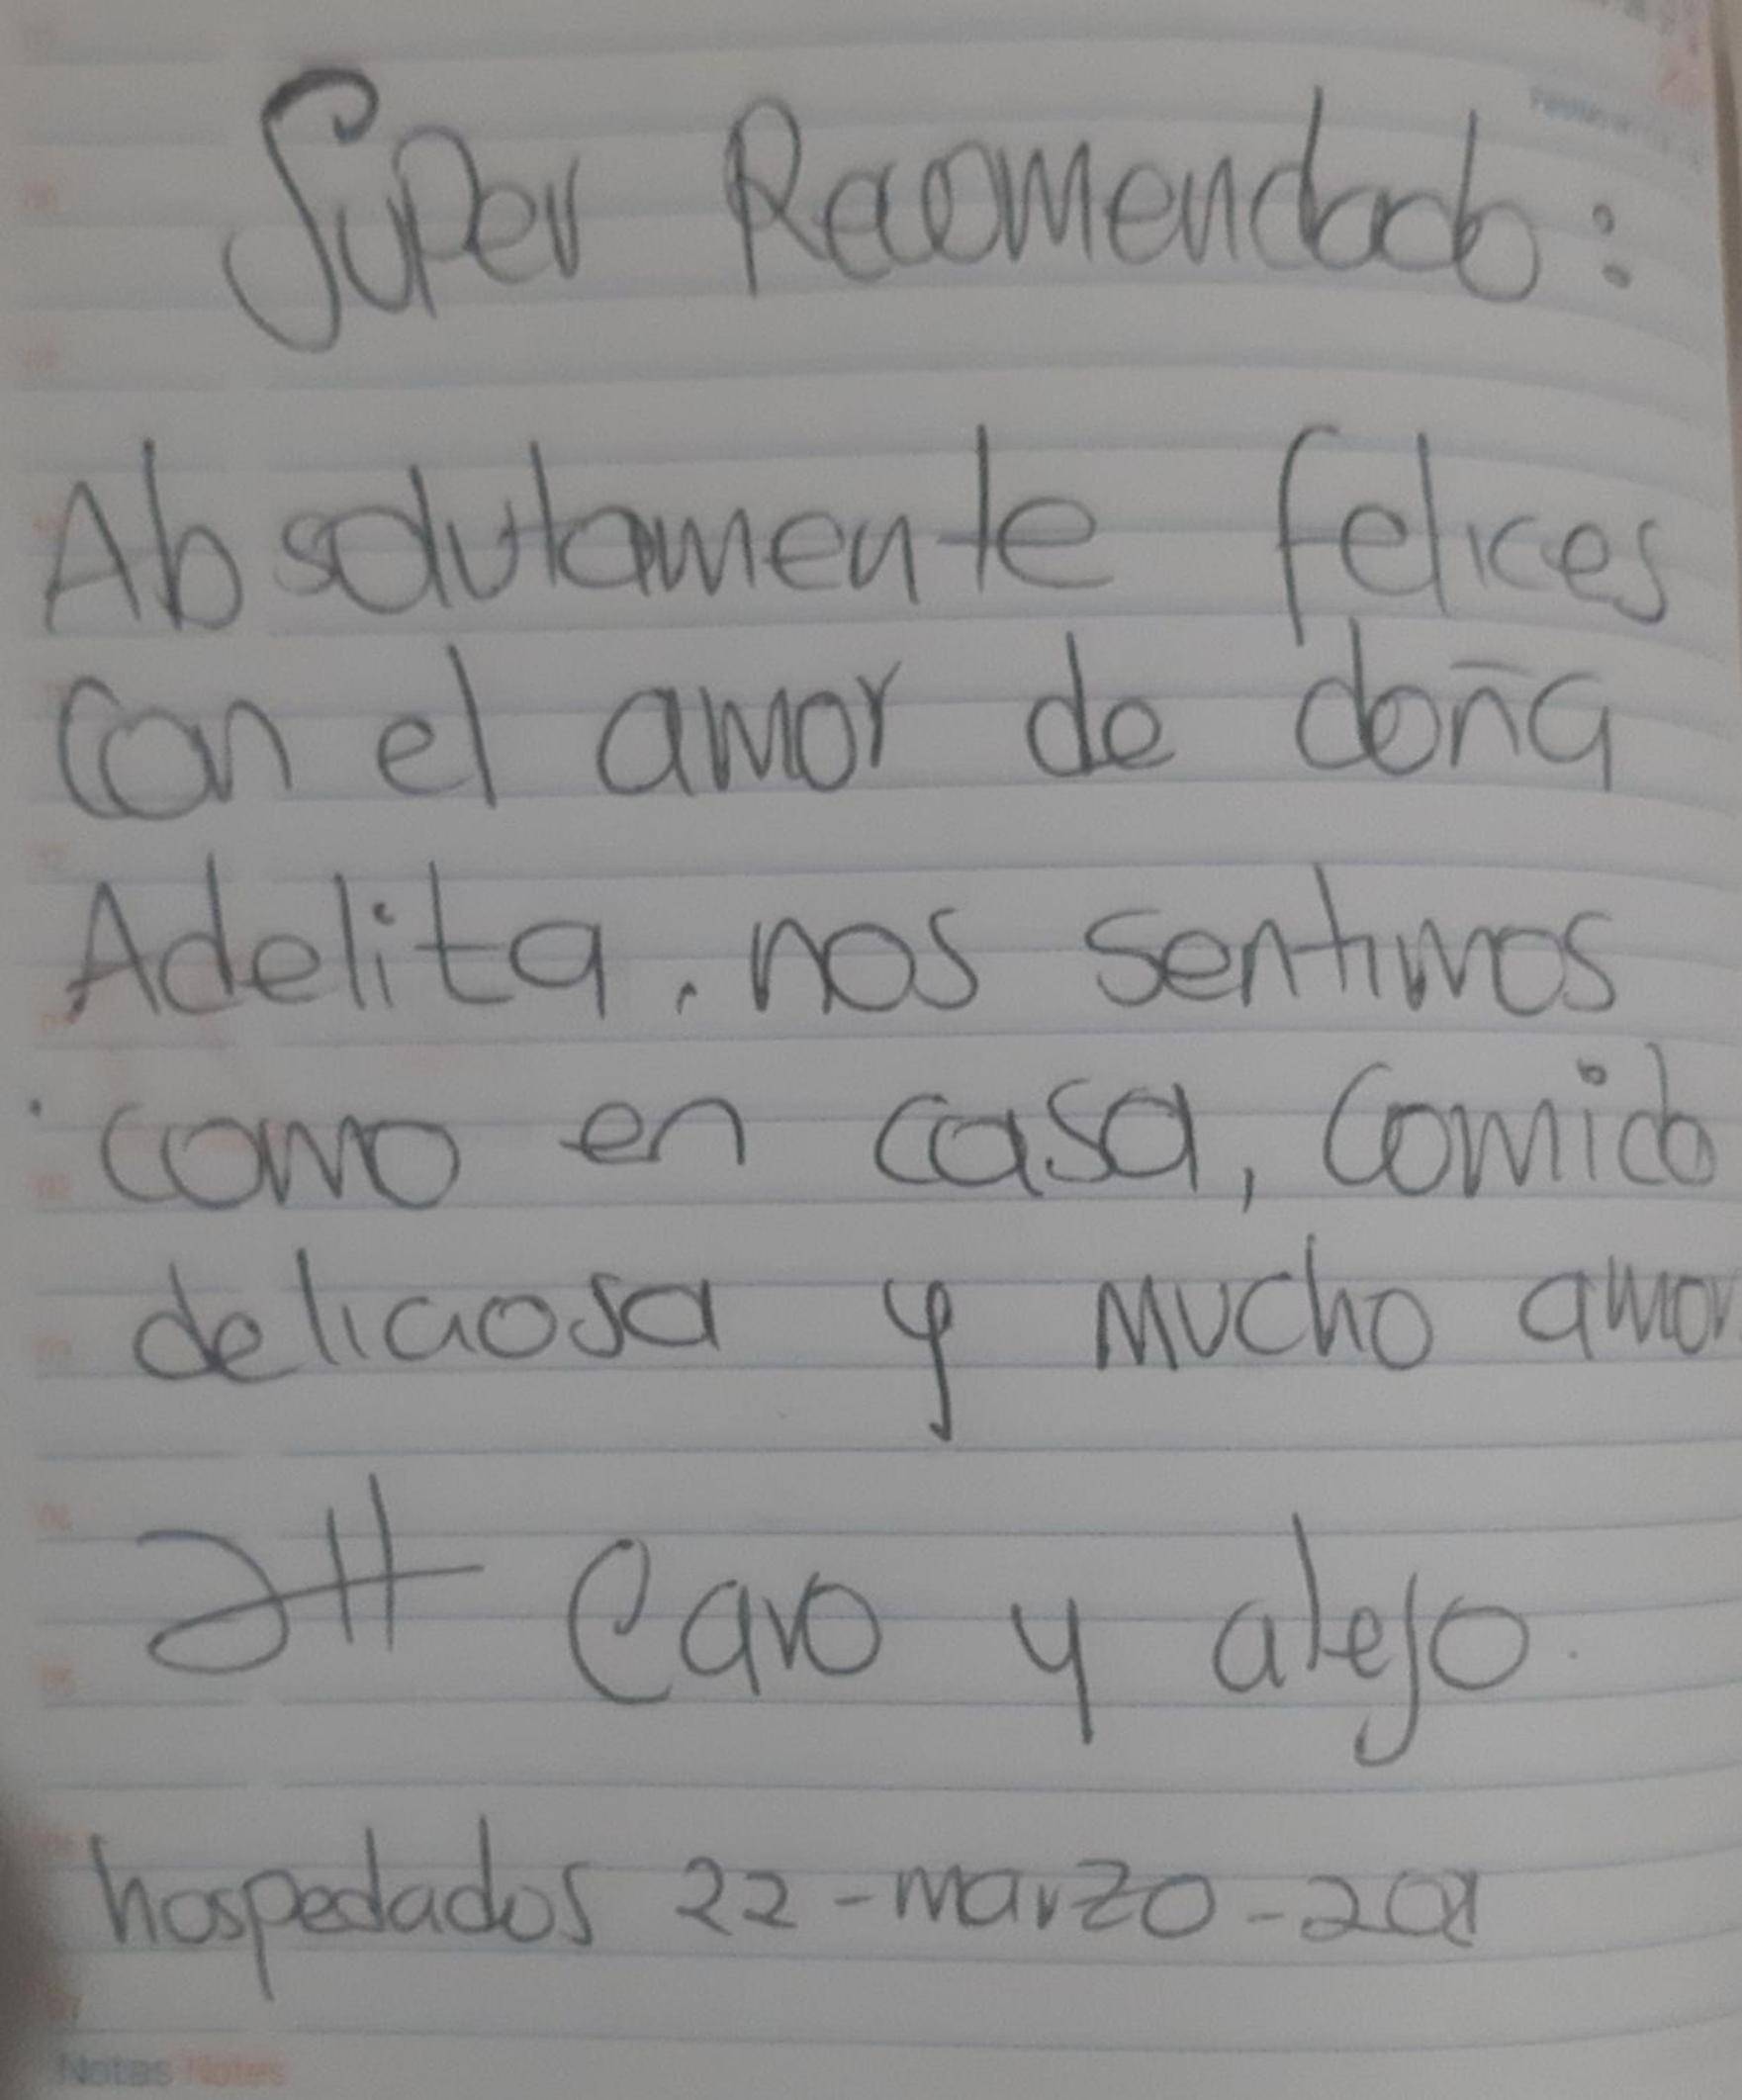 Super Recomendado:
Absolutamente felices
con el amor de doña
Adelita. nos sentimos
como en casa, comida
deliciosa y mucho amor
Caro y alejo.
hospedados 22-marzo-
Notas Notes